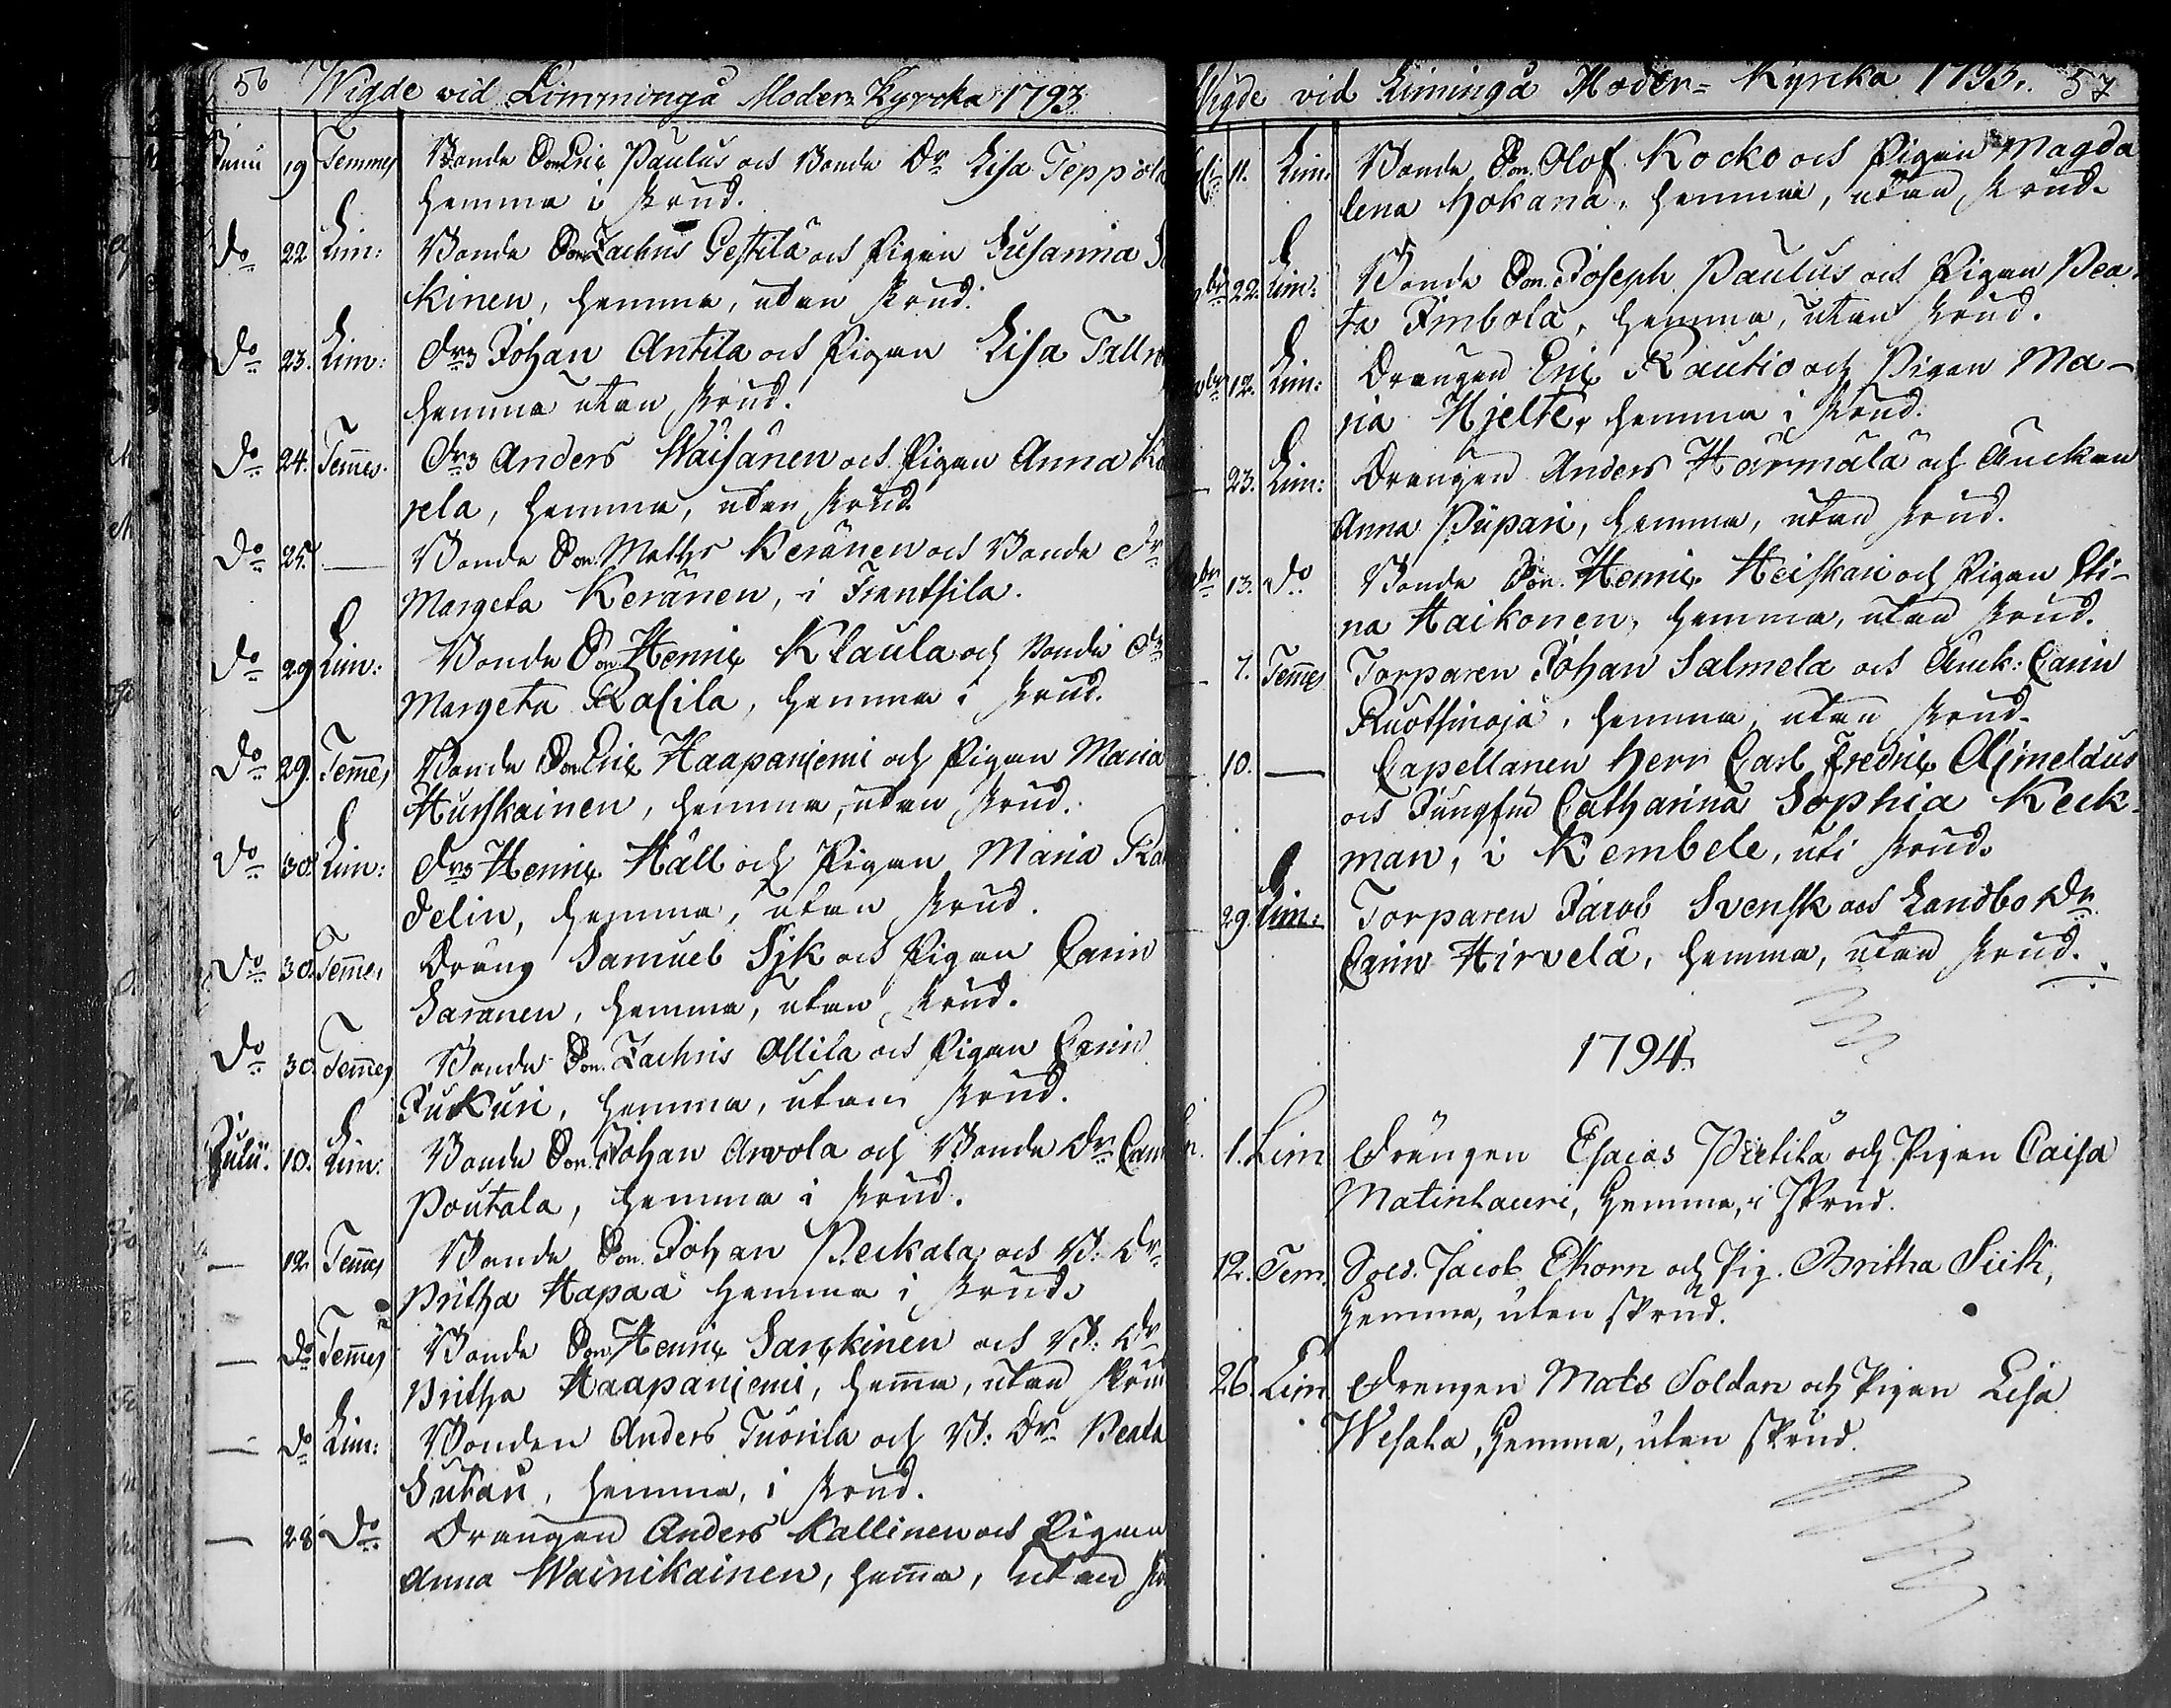 56 Wigde vid Limminga Moder Kyrcka 1793
Junii 19 Temmes Bonde Son Eric Paulus och Bonde Dr Lisa Teppola
hemma i skrud.
Do 22 Lim: Bonde Son Zachris Gestilä och Pigan Susanna
kinen, hemma, utan skrud.
Do 23. Lim: Drg Johan Antila och Pigan Lisa
hemma utan skrud.
Do 24. Temes. Drg Anders Wäisänen och Pigan Anna
rela, hemma, utan skrud
Do 25. — Bonde Son Matths Keränen och Bonde Dr
Margeta Keränen, i Frantsila.
Do 29 Lim: Bonde Son Henric Klaula och Bonde Dr
Margeta Rasila, hemma i skrud.
Do 29. Temes Bonde Son Eric Haapaniemi och Pigan Maria
Hurskainen, hemma, utan skrud.
Do 30. Lim: Drg Henric Häll och Pigan Maria
delin, hemma, utan skrud.
Do 30. Temes Dräng Samuel Sjk och Pigan Carin
Saranen, hemma, utan skrud.
Do 30. Temes Bonde Son Zachris Ollila och Pigan Carin
Jukuri, hemma, utan skrud.
Julii. 10. Lim: Bonde Son Johan Arvola och Bonde Dr
Poutala, hemma i skrud.
— 12 Temes Bonde Son Johan Peckala och B: Dr
Britha Hapaa hemma i skrud.
— Do Temes Bonde Son Henric Sarckinen och B: Dr
Britha Haapaniemi, hema, utan skrud
— Do Lim: Bonden Anders Tuorila och B: Dr Beata
Sutari, hemma, i skrud.
— 28 Do Drängen Anders Kallinen och Pigan
Anna Wainikainen, hema, utan
Wigde vid Liminga Moder= Kyrcka 1793. 57
11. Lim: Bonde Son Olof Kocko och Pigan Magda
lena Hokana, hemma, utan skrud.
22. Lim: Bonde Son Joseph Paulus och Pigan Bea-
ta Jmbola, hemma, utan skrud.
12. Lim: Drängen Eric Rautio och Pigan Ma-
ria Hjelte, hemma i skrud.
— 23. Lim: Drängen Anders Härmälä och Änckan
Anna Pupari, hemma, utan skrud.
13. Do Bonde Son Henric Heiskari och Pigan Sti-
na Haikonen, hemma, utan skrud.
— 7. Temes Torparen Johan Salmela och Änck: Carin
Ruotsinoja, hemma, utan skrud.
— 10. — Capellanen Herr Carl Fredric Almeldus
och Jungfru Catharina Sophia Keck-
man, i Kembele, uti skrud.
— 29. Lim: Torparen Jacob Svensk och Landbo Dr
Carin Hirvelä, hemma, utan skrud.
1794.
1. Lim Drängen Esaias Pietilä och Pigan Caisa
Matinlauri, hemma, i skrud.
12. Tem. Sold. Jacob Ekorn och Pig. Britha Siik,
hemma, utan skrud.
26. Lim Drengen Mats Soldan och Pigan Lisa
Wesala, hemma, utan skrud.